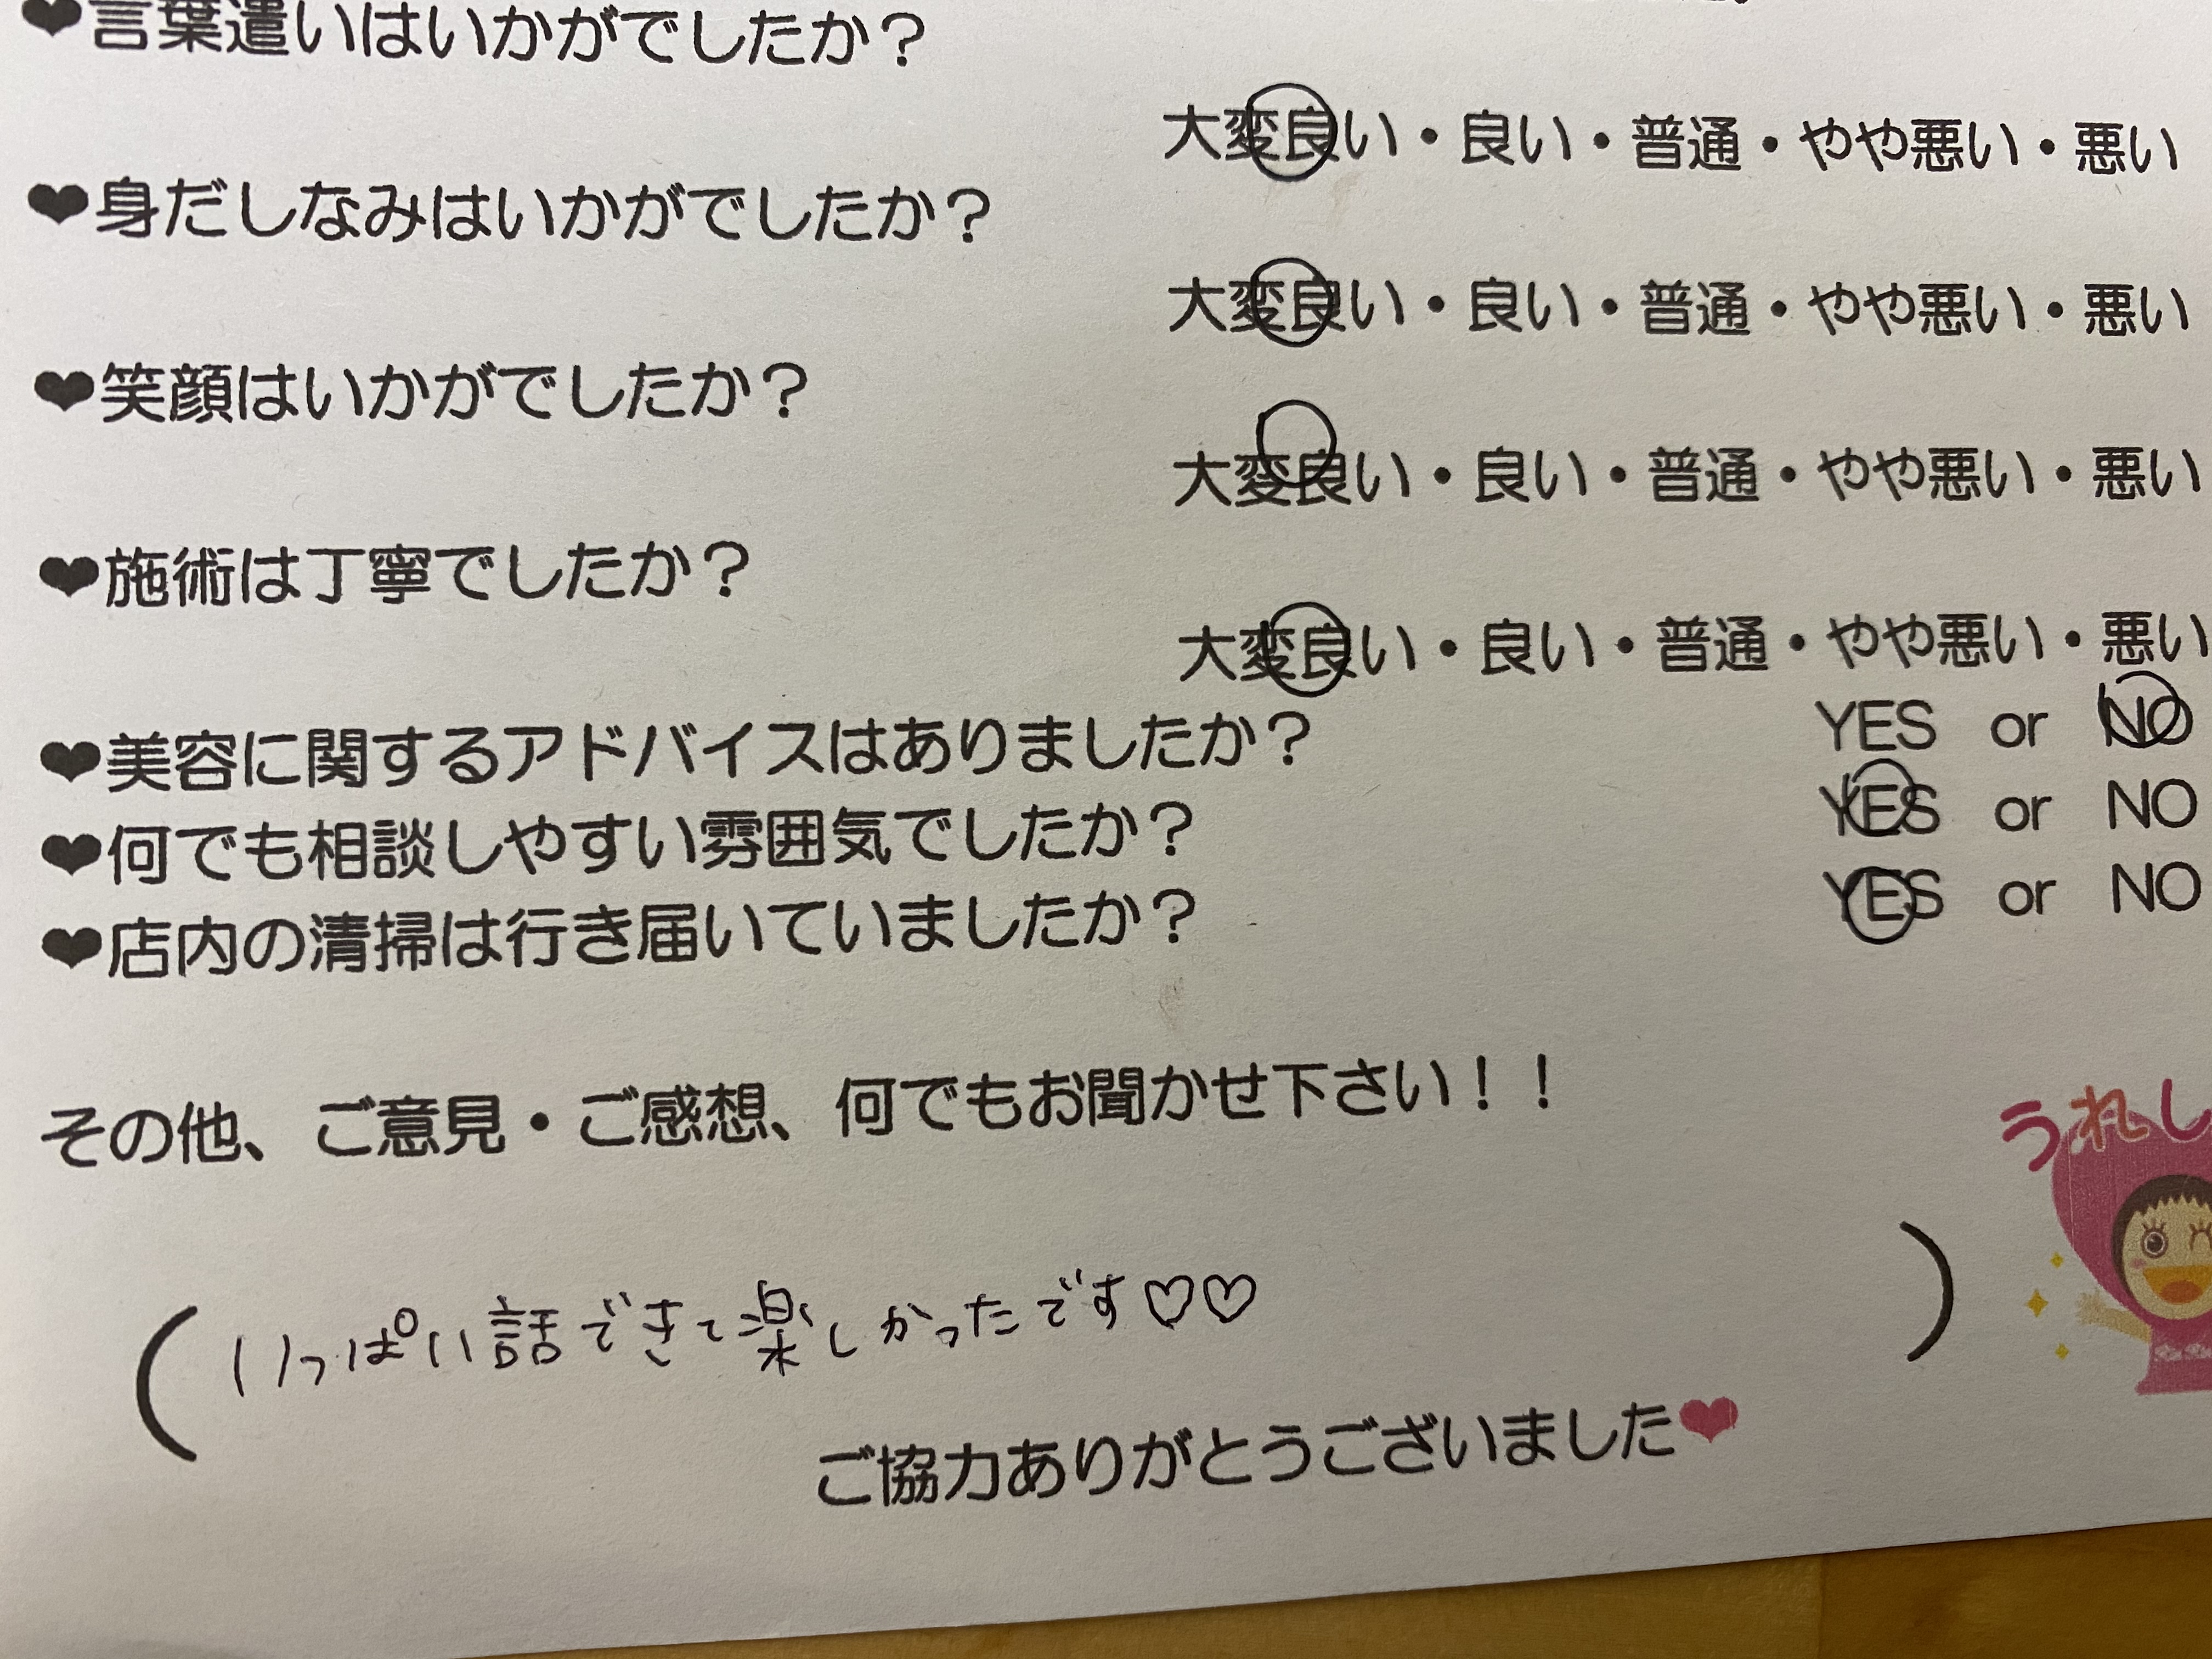 ❤言葉遣いはいかがでしたか？
大変良い・良い・普通・やや悪い・悪い
❤身だしなみはいかがでしたか？
大変良い・良い・普通・やや悪い・悪い
❤笑顔はいかがでしたか？
大変良い・良い・普通・やや悪い・悪い
❤施術は丁寧でしたか？
大変良い・良い・普通・やや悪い・悪い
❤美容に関するアドバイスはありましたか？ YES or NO
❤何でも相談しやすい雰囲気でしたか？ YES or NO
❤店内の清掃は行き届いていましたか？ YES or NO
その他、ご意見・ご感想、何でもお聞かせ下さい！！
うれし
（いっぱい話できて楽しかったです♡♡）
ご協力ありがとうございました❤